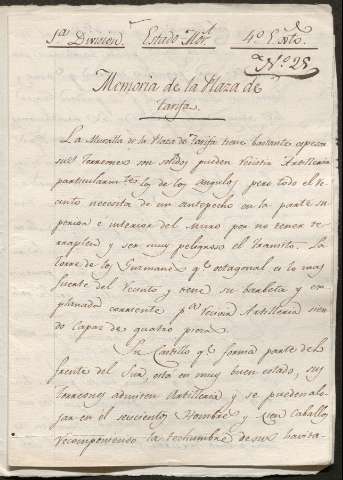 1ª Division. Estado Mor. 4º Exto.
Nº 25
Memoria de la Plaza de
tarifa.
La Muralla de la Plaza de tarifa tiene bastante espesor
sus torreones son solidos pueden resistir Artilleria
particularmte. los de los angulos, pero todo el re-
cinto necesita de un antepecho en la parte su-
perior e interior del muro por no tener te-
rraplen y ser muy peligroso el transito. La
torre de los Guzmanes qe. octagonal es lo mas
fuerte del recinto y tiene su barbeta y ex-
planada corriente pª. Artilleria sien-
do capaz de quatro piezas.
Su Castillo qe. forma parte del
frente del Sur, esta en muy buen estado, sus
torreones admiten Artilleria y se pueden alo-
jar en el seiscientos Hombres y cien Caballos
recomponiendo la techumbre de sus havita-